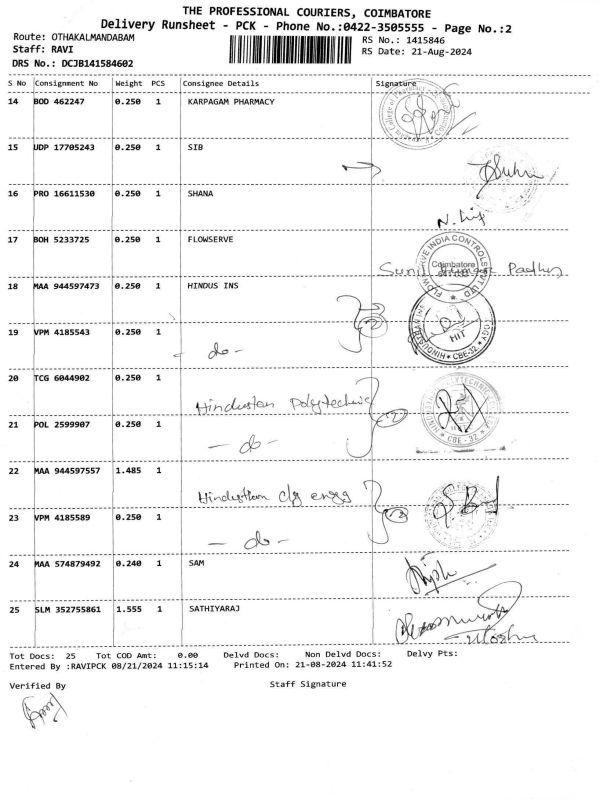 THE PROFESSIONAL COURIERS, COIMBATORE
Delivery Runsheet - PCK - Phone No.:0422-3505555 - Page No.:2
Route: OTHAKALMANDABAM RS No.: 1415846
Staff: RAVI RS Date: 21-Aug-2024
DRS No.: DCJB141584602
S No Consignment No Weight PCS Consignee Details Signature
14 BOD 462247 0.250 1 KARPAGAM PHARMACY
15 UDP 17705243 0.250 1 SIB
16 PRO 16611530 0.250 1 SHANA
17 BOH 5233725 0.250 1 FLOWSERVE
Coimbatore
Sunil Kumar Padhy
18 MAA 944597473 0.250 1 HINDUS INS
HIT
CBE-32
19 VPM 4185543 0.250 1
- do -
20 TCG 6044902 0.250 1
Hindustan Polytechnic
21 POL 2599907 0.250 1
- do -
CBE - 32
22 MAA 944597557 1.485 1
Hindusthan clg engg
23 VPM 4185589 0.250 1
- do -
24 MAA 574879492 0.240 1 SAM
25 SLM 352755861 1.555 1 SATHIYARAJ
Tot Docs: 25 Tot COD Amt: 0.00 Delvd Docs: Non Delvd Docs: Delvy Pts:
Entered By :RAVIPCK 08/21/2024 11:15:14 Printed On: 21-08-2024 11:41:52
Verified By Staff Signature